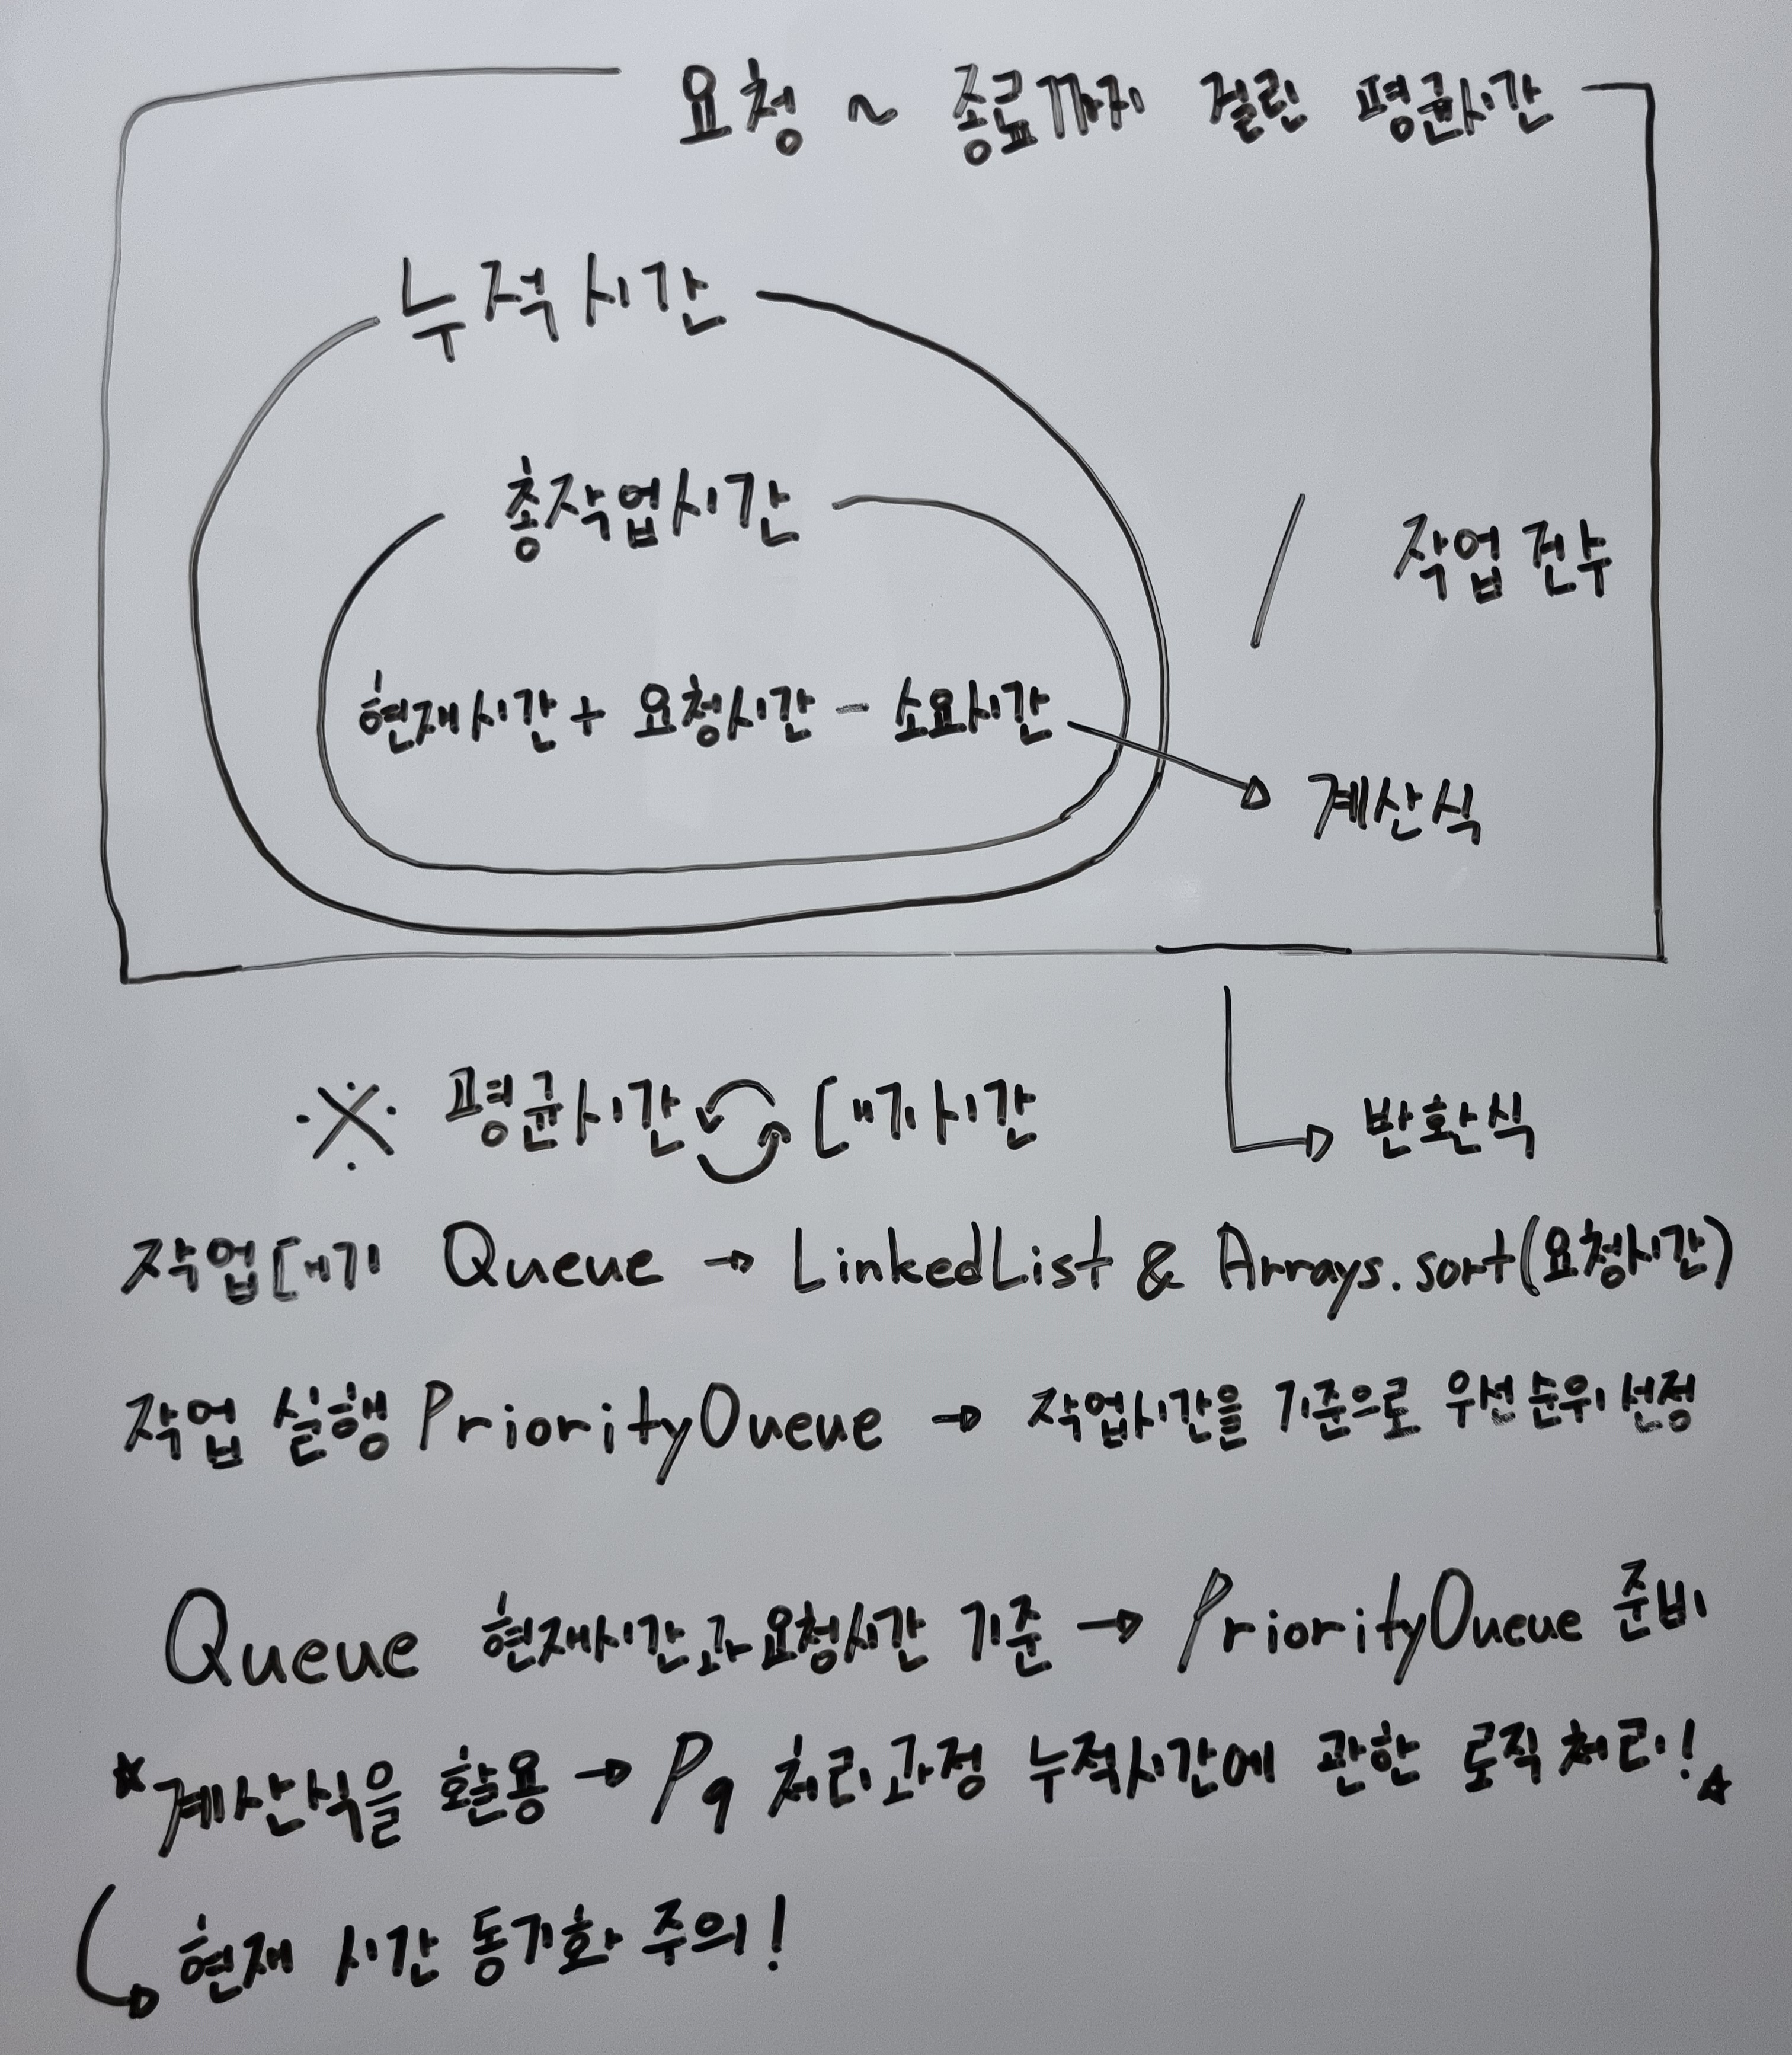 요청 ~ 종료까지 걸린 평균시간
누적시간
총작업시간
/ 작업 건수
현재시간 + 요청시간 - 소요시간
계산식
※ 평균시간 대기시간
반환식
작업대기 Queue → LinkedList & Arrays.sort(요청시간)
작업 실행 PriorityQueue → 작업시간을 기준으로 우선순위 선정
Queue 현재시간과 요청시간 기준 → PriorityQueue 준비
☆계산식을 활용 → Pq 처리과정 누적시간에 관한 로직처리!☆
현재 시간 동기화 주의!